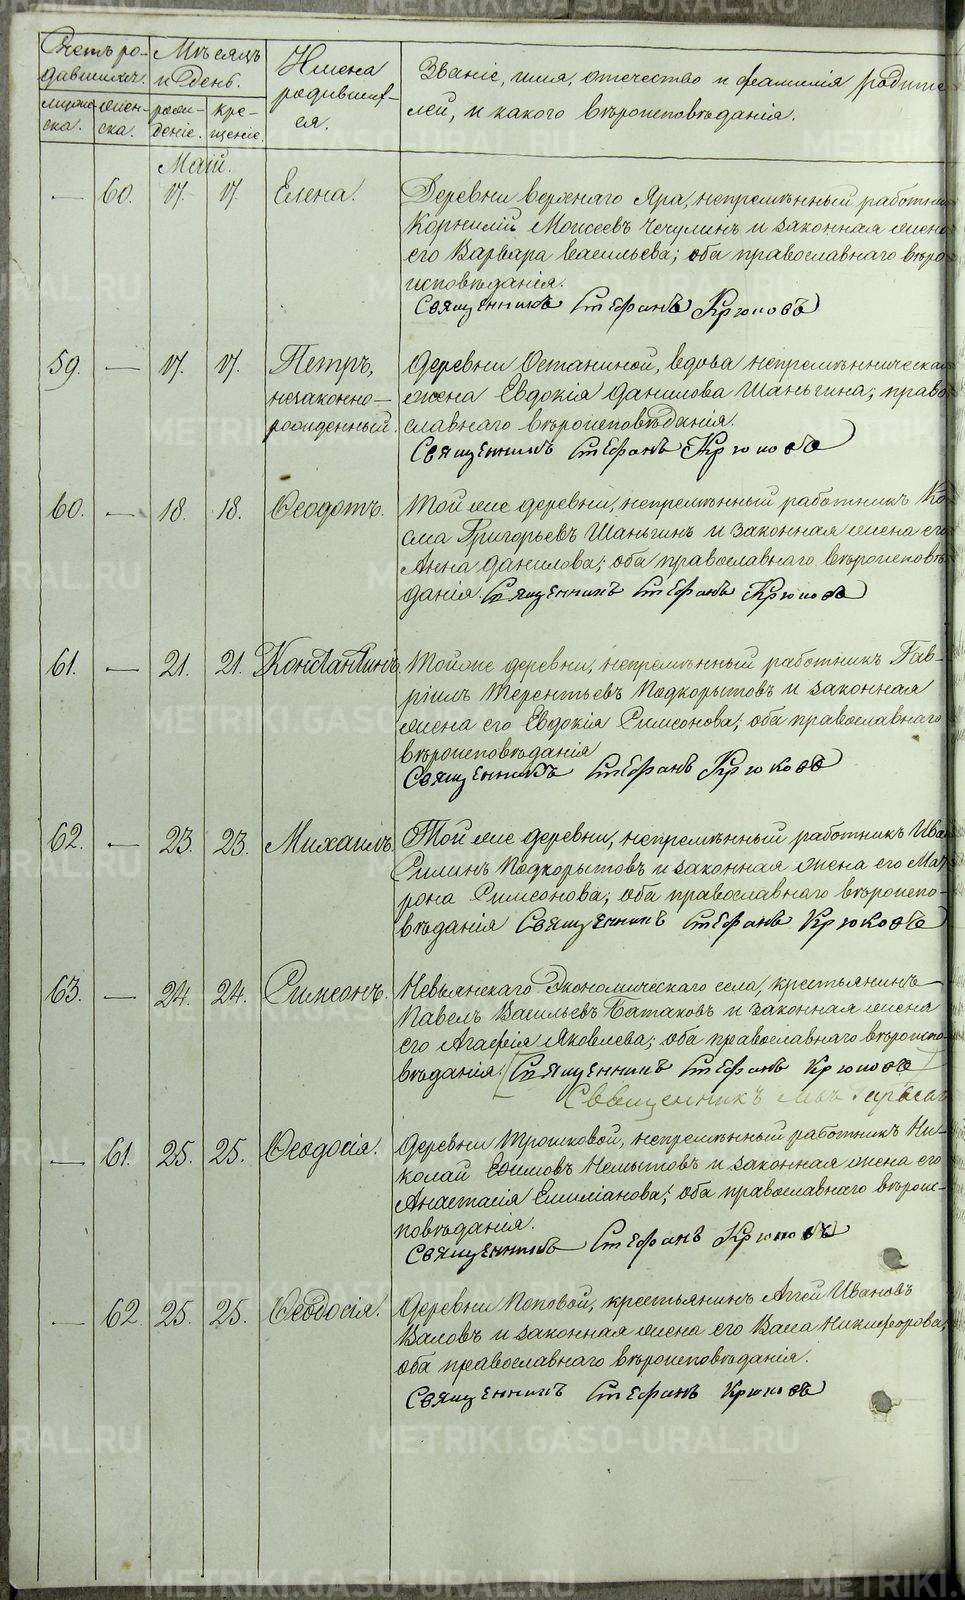 Счетъ ро-
дившихся.
Мѣсяцъ
и день.
Имена
родивших-
ся.
Званіе, имя, отечество и фамилія родите
лей, и какого вѣроисповѣданія.
мужес
ска.
жен-
ска.
рож-
деніе.
кре-
щеніе.
Маій.
— 60. 17. 17. Елена. Деревни верхняго Яра, непремѣнный работни
Корнилій Моисеевъ Чечулинъ и законная жена
его Варвара Васильева; оба православнаго вѣро
исповѣданія.
Священникъ Стефанъ Крюковъ
59. — 17. 17. Петръ, Деревни Останиной, вдова непремѣнническая
незаконно- жена Евдокія Данилова Шаньгина; право
рожденный. славнаго вѣроисповѣданія.
Священникъ Стефанъ Крюковъ
60. — 18. 18. Ѳеодотъ. Той же деревни, непремѣнный работникъ Ко
сма Григорьевъ Шаньгинъ и законная жена его
Анна Данилова; оба православнаго вѣроисповѣ
данія. Священникъ Стефанъ Крюковъ
61. — 21. 21. Константинъ. Той же деревни, непремѣнный работникъ Гав-
ріилъ Терентьевъ Подкорытовъ и законная
жена его Евдокія Симсонова; оба православнаго
вѣроисповѣданія
Священникъ Стефанъ Крюковъ
62. — 23. 23. Михаилъ. Той же деревни, непремѣнный работникъ Ива
Силинъ Подкорытовъ и законная жена его Мат
рона Симсонова; оба православнаго вѣроиспо-
вѣданія Священникъ Стефанъ Крюковъ
63. — 24. 24. Симсонъ. Невьянскаго Экономическаго села, крестьянинъ
Павелъ Васильевъ Батаковъ и законная жена
его Агафія Яковлева; оба православнаго вѣроиспо-
вѣданія. Священникъ Стефанъ Крюковъ
Священникъ
— 61. 25. 25. Ѳеодосія. Деревни Трошковой, непремѣнный работникъ Ни-
колай Ефимовъ Немытовъ и законная жена его
Анастасія Емиліанова; оба православнаго вѣроис-
повѣданія.
Священникъ Стефанъ Крюковъ
— 62. 25. 25. Ѳеодосія. Деревни Поповой, крестьянинъ Аггей Ивановъ
Валовъ и законная жена его Васса Никифорова,
оба православнаго вѣроисповѣданія.
Священникъ Стефанъ Крюковъ
METRIKI.GASO-URAL.RU